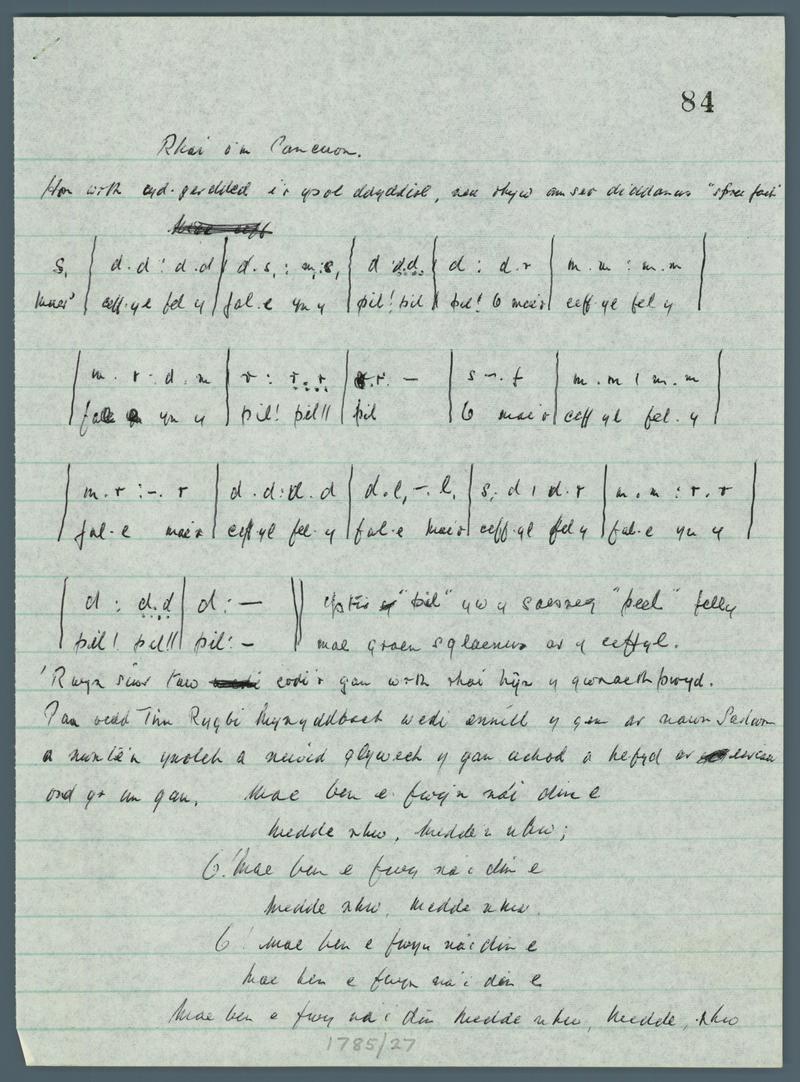 84
Rhai o'm Caneuon.
Hon wrth cyd-gerdded i'r ysol ddyddiol, neu rhyw amser diddanus "spree fach"
s, | d.d : d.d | d.s, : m,.s, | d : d.d | d : d.r | m.m : m.m |
Mae'r ceff-yl fel y fal-e yn y pil! pil pil! O mae'r ceff-yl fel y
| m.r : d.m | r : r.r | r : — | s : -.f | m.m : m.m |
yn y pil! pil!! pil O mae'r ceff-yl fel y
| m.r : -.r | d.d : d.d | d.l, : -.l, | s,.d : d.r | m.m : r.r |
fal-e mae'r ceff-yl fel-y fal-e mae'r ceff-yl fel y fal-e yn y
| d : d.d | d : — ||  "pil" yw y saesneg "peel" felly
pil! pil!! pil! - mae graen sglaenus ar y ceffyl.
'Rwyn siwr taw codi'r gan wrth rhai hŷn y gwnaethpwyd.
Pan oedd Tim Rygbi Mynyddbach wedi ennill y gem ar nawn Sadwrn
a nunlle'n ynolch a newid glywech y gan uchod a hefyd ar
ond yr un gan. Mae ben e fwy'n na'i din e
Medde nhw, Medde nhw;
O! Mae ben e fwy na'i din e
Medde nhw, Medde nhw.
O! Mae ben e fwyn na'i din e
Mae ben e fwyn na'i din e
Mae ben e fwy na'i din Medde nhw, Medde, nhw
1785/27